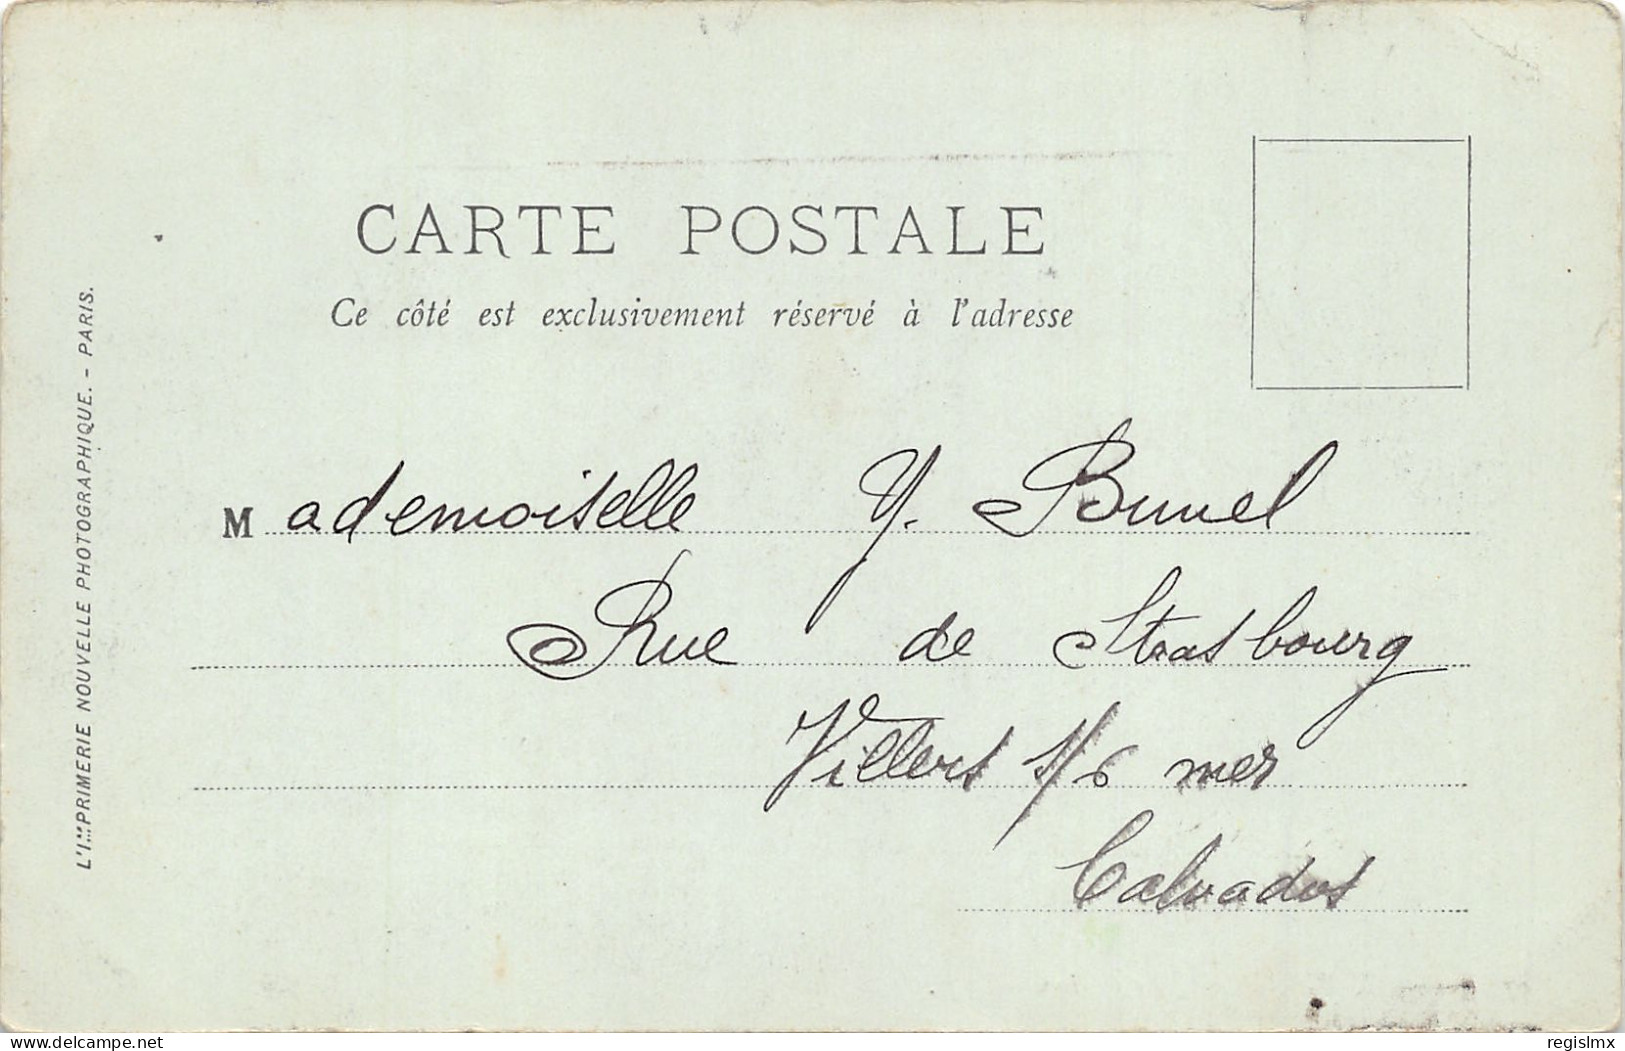 CARTE POSTALE
Ce côté est exclusivement réservé à l'adresse
Mademoiselle Y. Brunel
Rue de Strasbourg
Villers s/ mer
Calvados
L'IMPRIMERIE NOUVELLE PHOTOGRAPHIQUE. - PARIS.
delcampe.net
regislmx